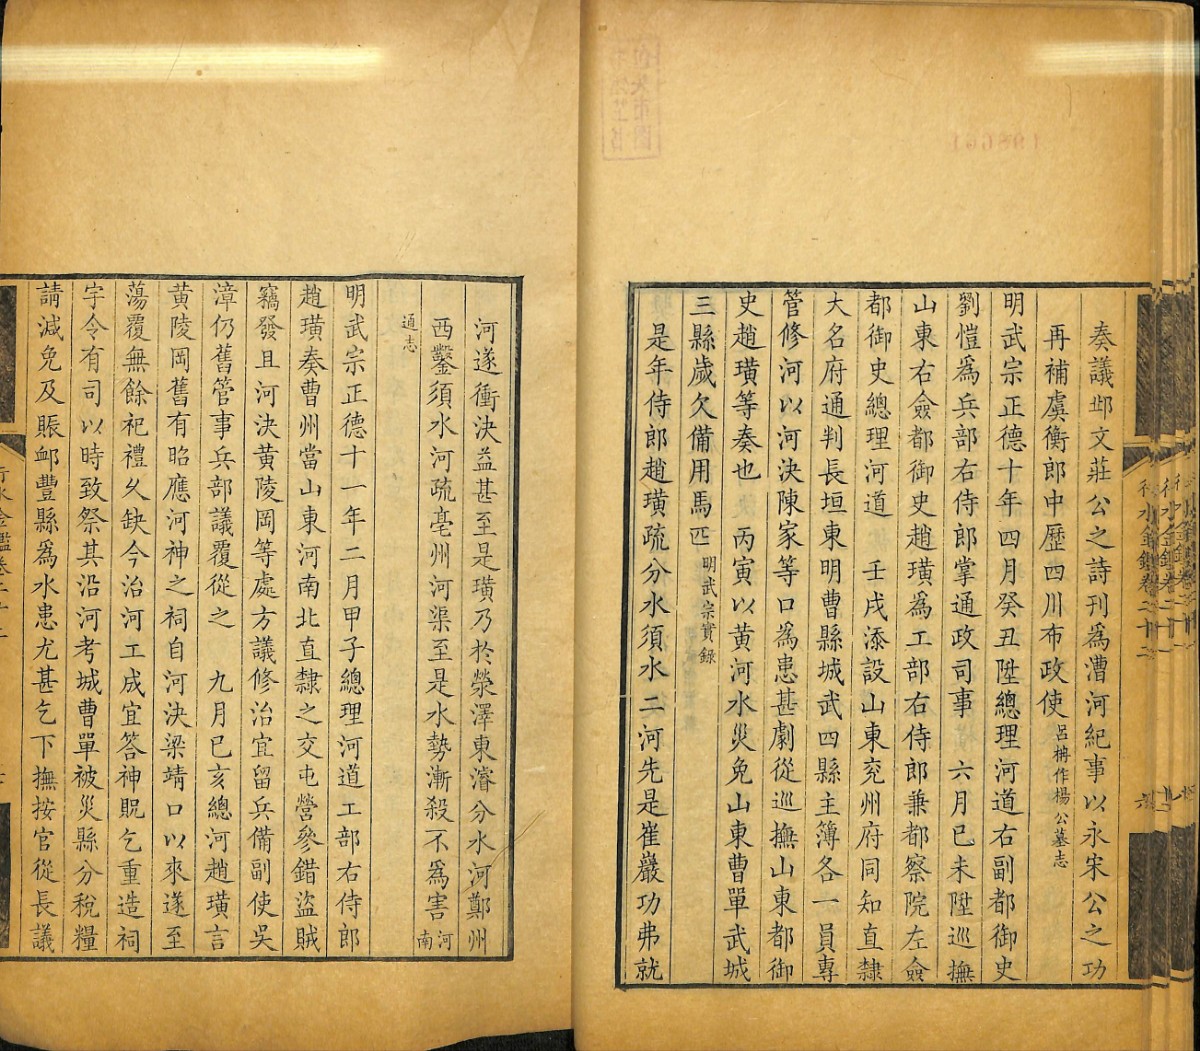 奏議邺文莊公之詩刊爲漕河紀事以永宋公之功
再補虞衡郎中歷四川布政使 呂柟作楊公墓志
明武宗正德十年四月癸丑陞總理河道右副都御史
劉愷爲兵部右侍郎掌通政司事 六月已未陞巡撫
山東右僉都御史趙璜爲工部右侍郎兼都察院左僉
都御史總理河道 壬戌添設山東兖州府同知直隸
大名府通判長垣東明曹縣城武四縣主簿各一員專
管修河以河決陳家等口為患甚劇從巡撫山東都御
史趙璜等奏也 丙寅以黄河水災免山東曹單武城
三縣歲欠備用馬匹 明武宗實錄
是年侍郎趙璜疏分水須水二河先是崔巖功弗就
河遂衝決益甚至是璜乃於滎澤東濬分水河鄭州
西鑿須水河疏亳州河渠至是水勢漸殺不為害 河南
通志
明武宗正德十一年二月甲子總理河道工部右侍郎
趙璜奏曹州當山東河南北直隸之交屯營參錯盜賊
竊發且河決黄陵岡等處方議修治宜留兵備副使吳
漳仍舊管事兵部議覆從之 九月已亥總河趙璜言
黄陵岡舊有昭應河神之祠自河決梁靖口以來遂至
蕩覆無餘祀禮久缺今治河工成宜答神貺乞重造祠
宇令有司以時致祭其沿河考城曹單被災縣分稅糧
請減免及賑邺豐縣爲水患尤甚乞下撫按官從長議
行水金鑑卷二十二